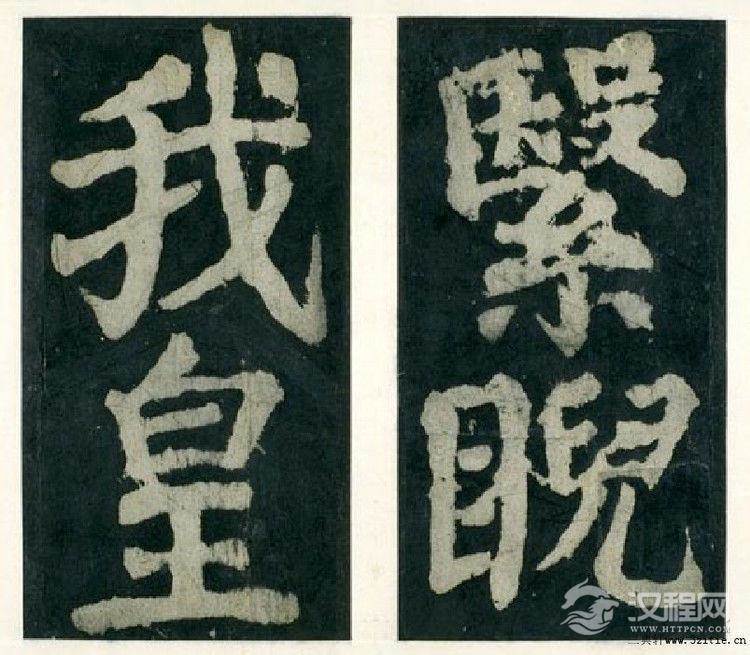 繄睨
我皇
汉程网
WWW.HTTPCN.COM
www.521tie.cn